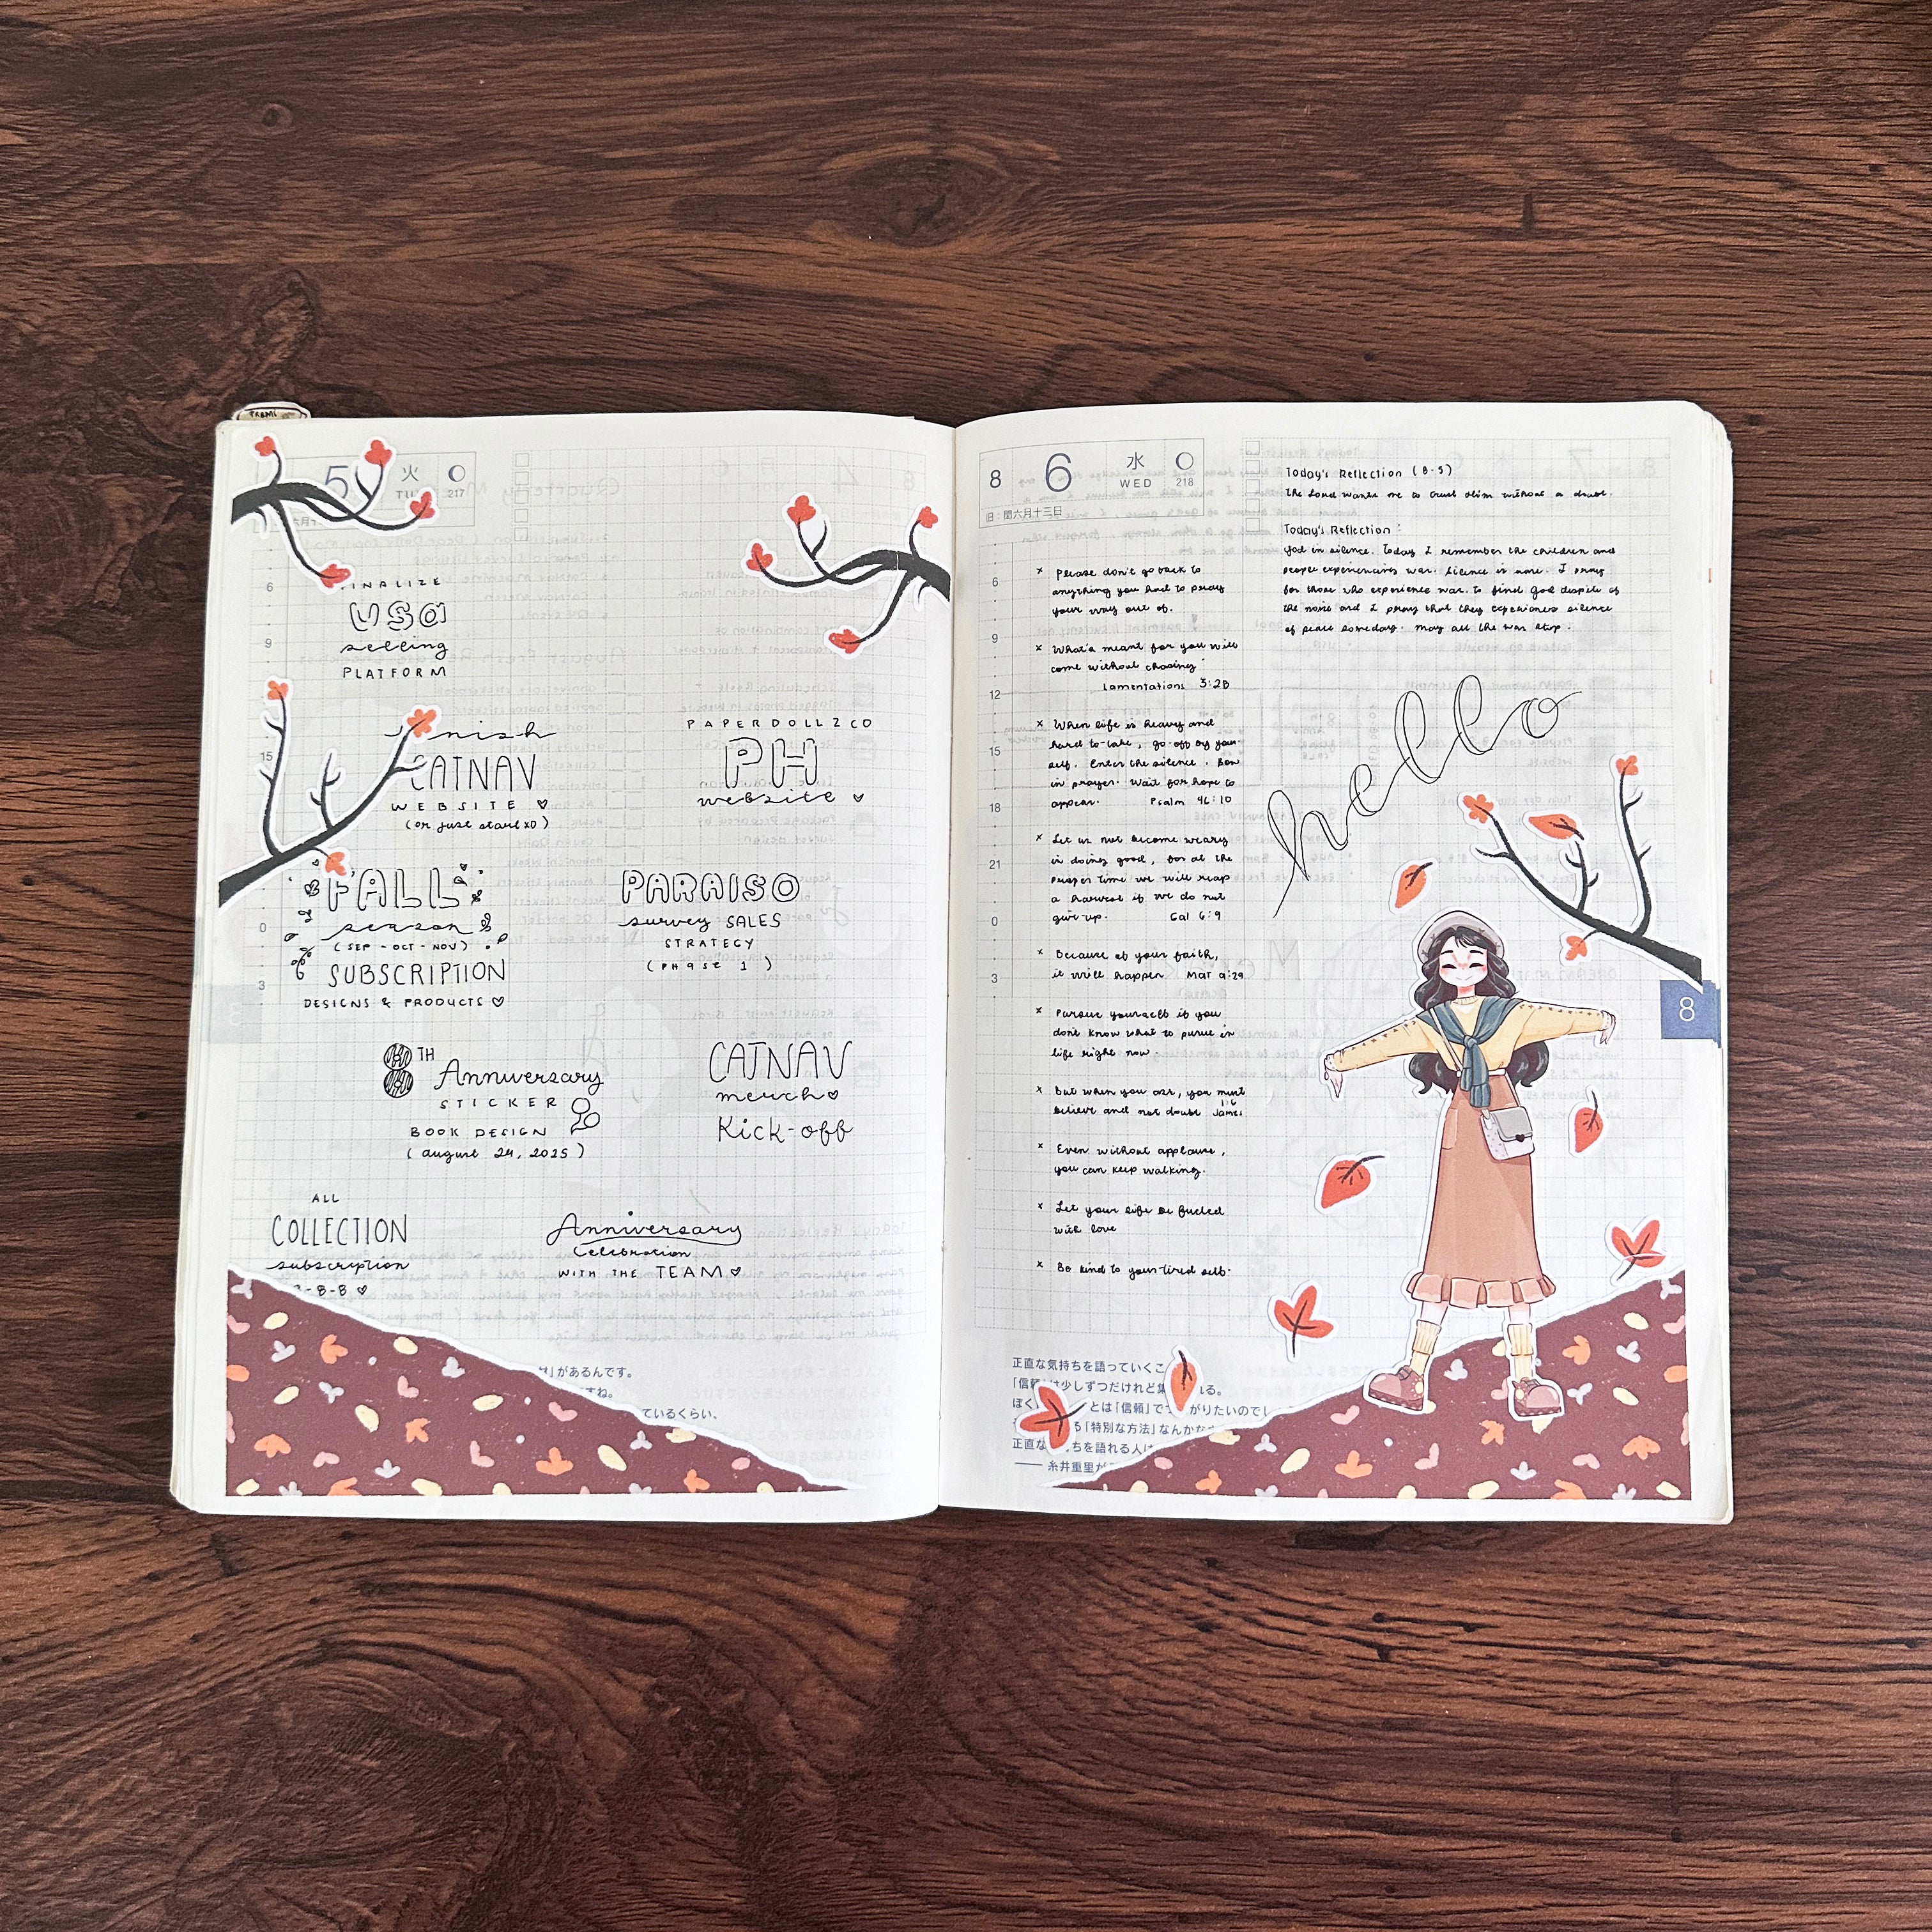 5
火
TU
217
INALIZE
USA
selling
PLATFORM
nish
CATNAV
WEBSITE ♡
(or just start xD)
PAPERDOLLZCO
PH
website ♡
FALL
season
(SEP - OCT - NOV)
SUBSCRIPTION
DESIGNS & PRODUCTS ♡
PARAISO
survey SALES
STRATEGY
(PHASE 1)
8TH
Anniversary
STICKER
BOOK DESIGN
(august 29, 2025)
CATNAV
merch ♡
Kick-off
ALL
COLLECTION
subscription
8-8 ♡
Anniversary
Celebration
WITH THE TEAM ♡
6
9
15
0
3
があるんです。
すね。
ているくらい、
8
6
水
WED
218
旧:閏六月十三日
6
9
12
15
18
21
0
3
x Please don't go back to
anything you had to pray
your way out of.
x What's meant for you will
come without chasing
Lamentations 3:28
x When life is heavy and
hard to take, go off by your-
self. Enter the silence. Bow
in prayer. Wait for hope to
appear. Psalm 46:10
x Let us not become weary
in doing good, for at the
proper time we will reap
a harvest if we do not
give up. Gal 6:9
x Because of your faith,
it will happen Mat 9:29
x Pursue yourself if you
don't know what to pursue in
life right now.
x But when you ask, you must
believe and not doubt James 1:6
x Even without applause,
you can keep walking.
x Let your life be fueled
with love
x Be kind to your tired self.
Today's Reflection (8-5)
The Lord wants me to trust Him without a doubt.
Today's Reflection:
God in silence. Today I remember the children and
people experiencing war. Silence is rare. I pray
for those who experience war. to find God despite of
the noise and I pray that they experience silence
of peace someday. May all the war stop.
hello
8
正直な気持ちを語っていくこ
「信頼」は少しずつだけれど集 れる。
ぼく とは「信頼」でつ がりたいのでし
る「特別な方法」なんかな
正直な ちを語れる人は
── 糸井重里が